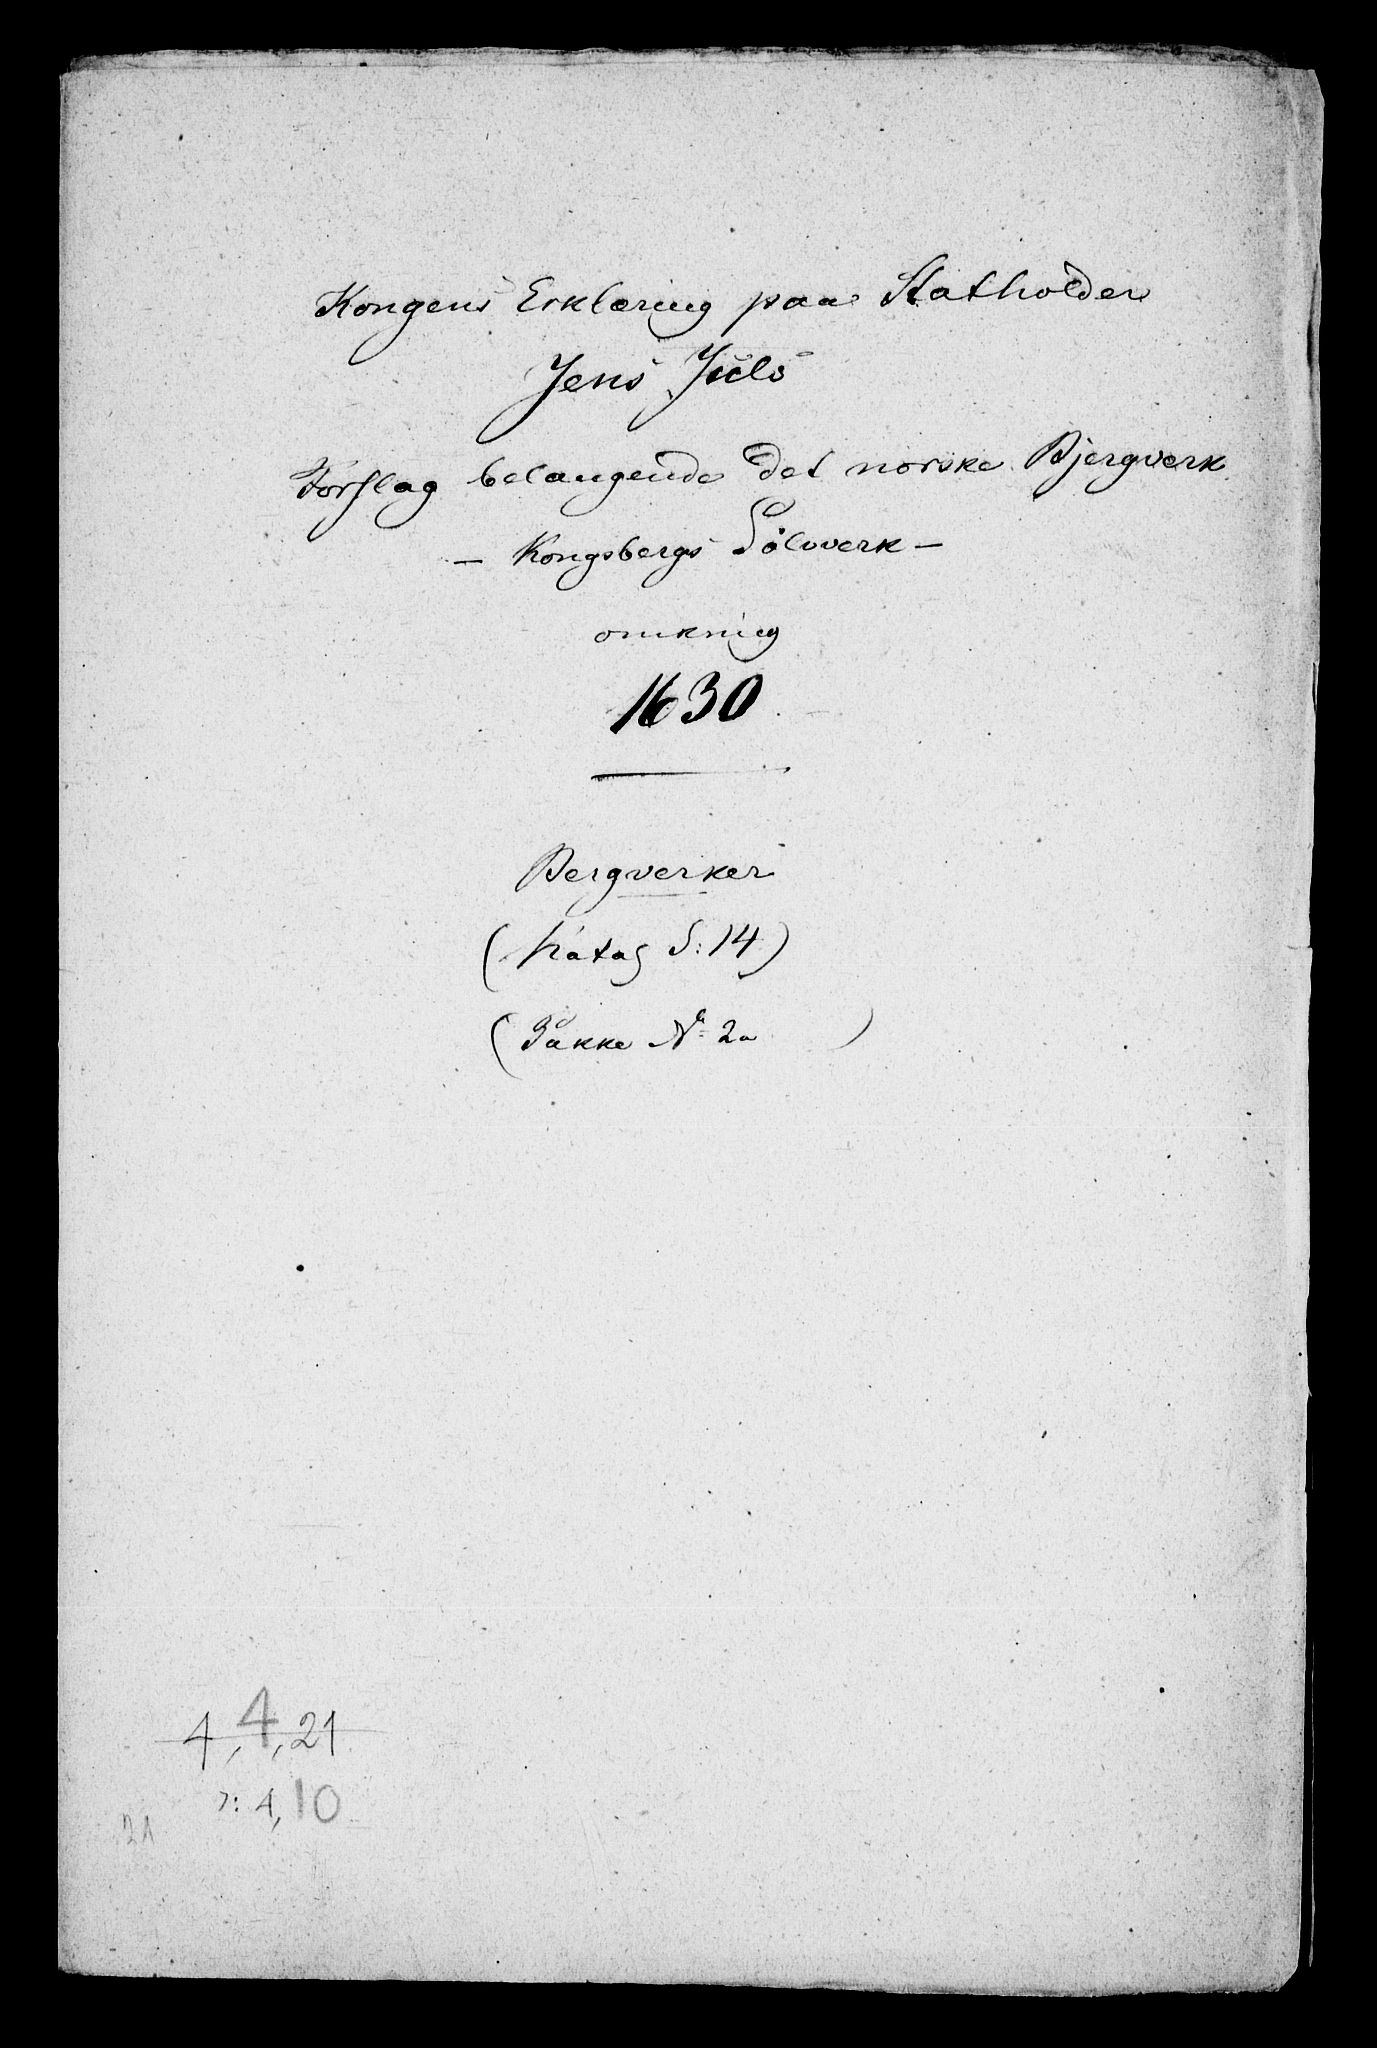 Kongens Erklæring paa Statholder
Jens Juels
Forslag belangende det norske Bjergverk
- Kongsbergs Sölvverk -
omkring
1630
Bergverker
(Katag S: 14)
(Pakke No 2a )
4, 4, 21
4, 10
21